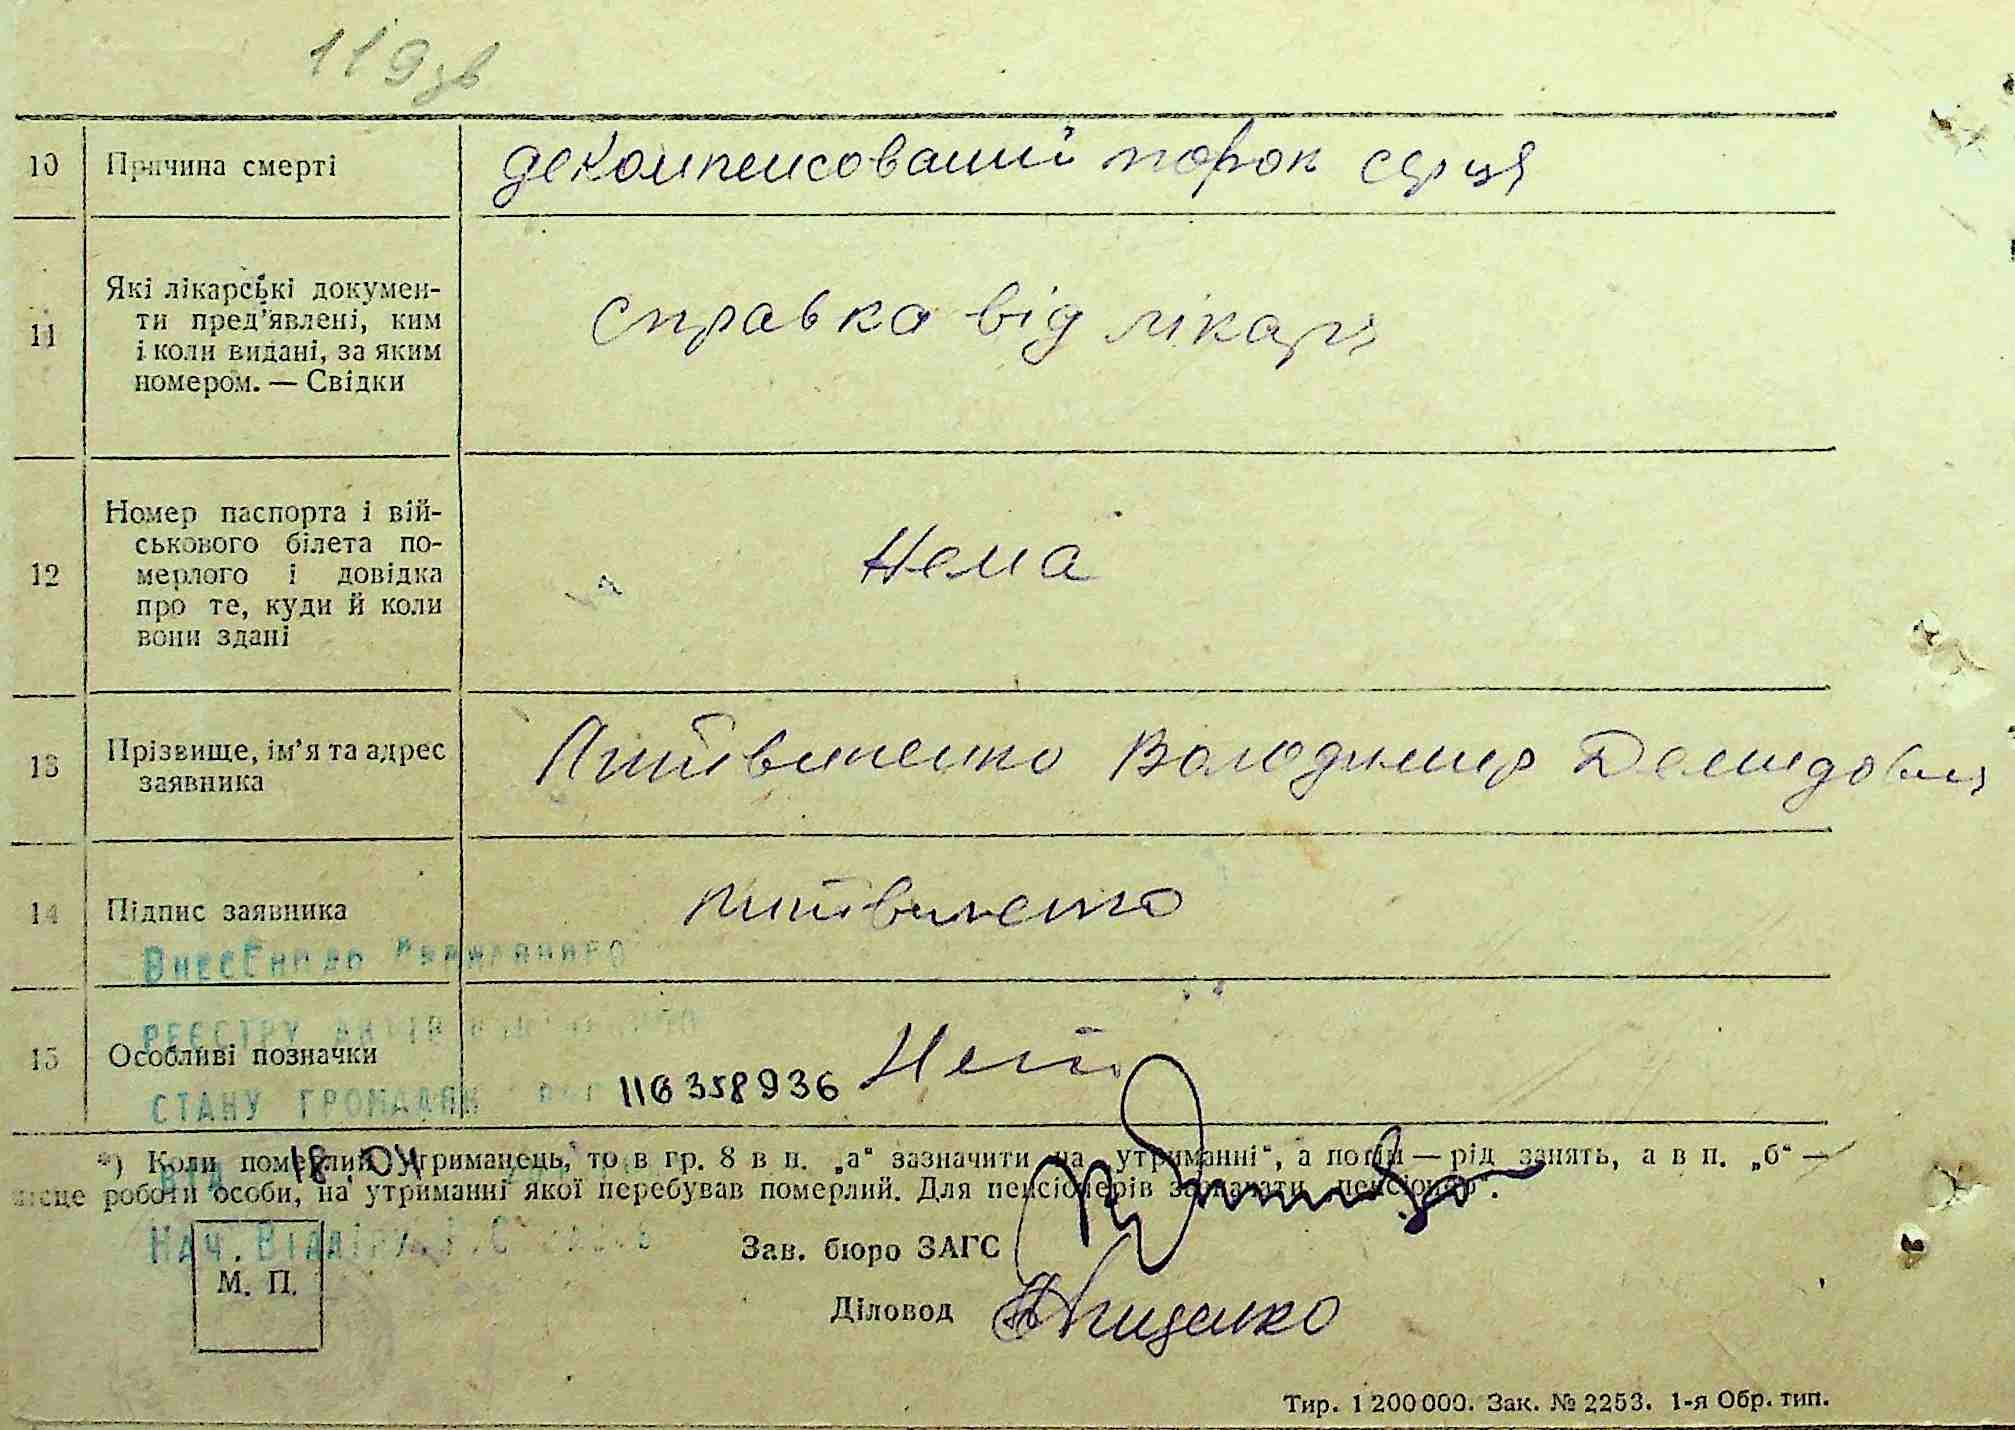 119зв
10 Причина смерті декомпенсований порок серця
11 Які лікарські докумен-
ти пред'явлені, ким
і коли видані, за яким
номером. — Свідки
справка від лікаря
12 Номер паспорта і вій-
ськового білета по-
мерлого і довідка
про те, куди й коли
вони здані
Нема
13 Прізвище, ім'я та адрес
заявника
Литвиненко Володимир Демидович
14 Підпис заявника Литвиненко
Внесено до Державного
РЕЄСТРУ АКТІВ
15 Особливі позначки Нема
СТАНУ ГРОМАДЯН 116358936
*) Коли померлий утриманець, то в гр. 8 в п. „а“ зазначити „на утриманні“, а потім — рід занять, а в п. „б“ —
місце роботи особи, на утриманні якої перебував померлий. Для пенсіонерів зазначати „пенсіонер“.
від 18.04
Нач. Відділу
М. П.
Зав. бюро ЗАГС
Діловод
Тир. 1 200 000. Зак. № 2253. 1-я Обр. тип.